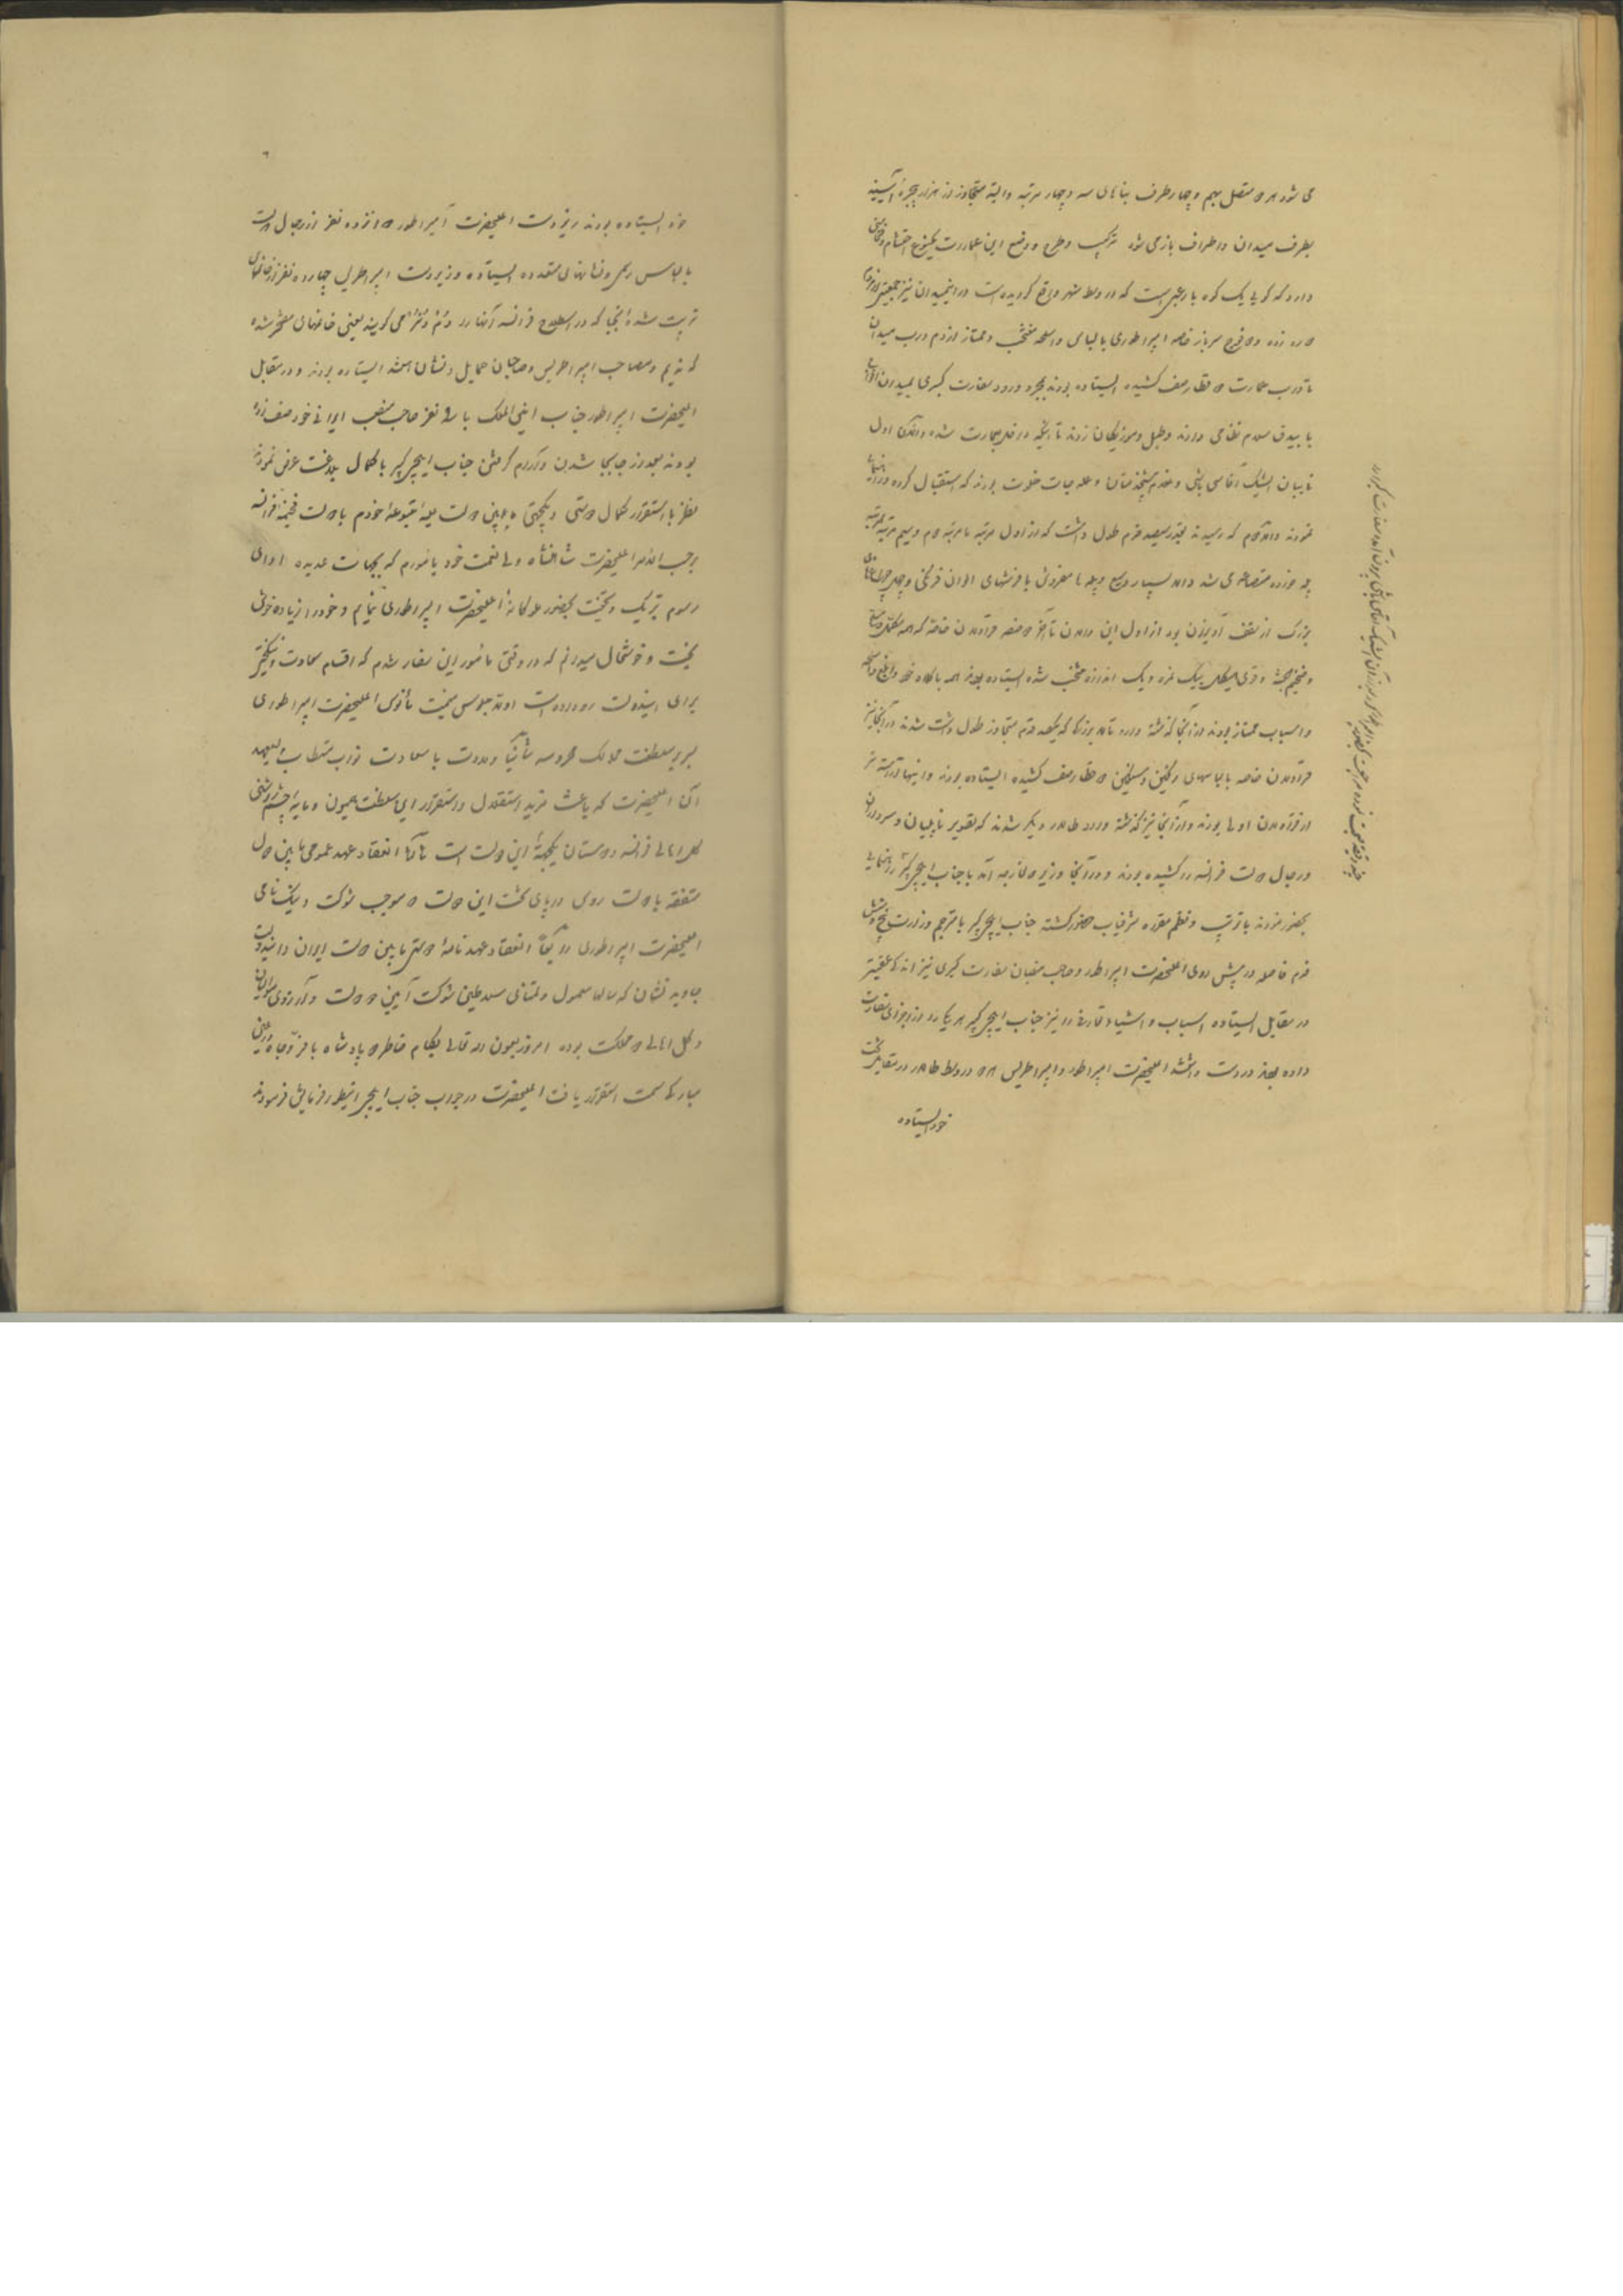 می شود هر دو متصل بهم و چهار طرف بناهای سه و چهار مرتبه و البته متجاوز از هزار پنجره آئینه
بطرف میدان و اطراف باز می شود ترکیب و طرح و وضع این عمارت یکنوع احتشام
دارد که گویا یک کوه با رعبی است که در وسط شهر واقع گردیده است در این میدان نیز جمعیتی
زده دو فوج سرباز خاصه امپراطوری با لباس و اسلحه منتخب و ممتاز از دم درب میدان
تا درب عمارت دو قطار صف کشیده ایستاده بودند بمجرد ورود سفارت کبری بمیدان
با بیدق سلام نظامی دادند و طبل و موزیکان زدند تا اینکه داخل عمارت شده دالان اول
نایبان ایشیک آقاسی باشی و پیشخدمتان و عمله جات خلوت بودند که استقبال کرده
نمودند دالان دوم که رسیدند بقدر سیصد قدم طول داشت که از اول مرتبه تا مرتبه دوم و سیم مرتبه بمرتبه
پله خورده متصاعد می شد دالان بسیار وسیع و پله ها مفروش با فرشهای الوان فرنگی و چهل چراغهای
بزرگ از سقف آویزان بود از اول این دالان تا آخر دو صف قراولان خاصه که همه
و ضخیم جثه و قوی هیکل بیک قد و یک اندازه منتخب شده ایستاده بودند همه با کلاه خود
و اسباب ممتاز بودند از آنجا گذشته وارد تالار بزرگی که یکصد قدم متجاوز طول داشت شدند در آنجا نیز
قراولان خاصه با لباسهای رنگین و سنگین دو قطار صف کشیده ایستاده بودند و اینها آراسته تر
از قراولان اولی بودند و از آنجا نیز گذشته وارد طالار دیگر شدند که تصویر ناپلیان و سرداران
و رجال دولت فرانسه را کشیده بودند و در آنجا وزیر خارجه آمد با جناب ایلچی کبیر راهنمایی
بحضور نمودند با ترتیب و نظم مقرره شرفیاب حضور گشته جناب ایلچی کبیر با مترجم وزارت پنج و شش
قدم فاصله در پیش روی اعلیحضرت امپراطور و صاحب منصبان سفارت کبری نیز اندکی عقبتر
در مقابل ایستاده اسباب و اشیاء را نیز جناب ایلچی کبیر هر یک را از اجزای سفارت
داده بودند در دست داشتند اعلیحضرت امپراطور و امپراطریس هر دو در وسط طالار در مقابل تخت
خود ایستاده
خود ایستاده بودند زیر دست اعلیحضرت امپراطور دوازده نفر از رجال دولت
با لباس رسمی و نشانهای متعدده ایستاده و زیر دست امپراطریس چهارده نفر از خانمهای
تربیت شده آنجا که در اصطلاح فرانسه آنها را دم دنر می گویند یعنی خانمهای مفخر شده
که ندیم و مصاحب امپراطریس و صاحبان حمایل و نشان هستند ایستاده بودند و در مقابل
اعلیحضرت امپراطور جناب امین الملک با نفر صاحب منصب ایرانی خود صف زده
بودند بعد از جابجا شدن و آرام گرفتن جناب ایلچی کبیر با کمال بلاغت عرض نمودند
نظر باستقرار کمال دوستی و یکجهتی مابین دولت علیه متبوعه خودم با دولت فخیمه فرانسه
برحسب الامر اعلیحضرت شاهنشاه ولی نعمت خود مأمورم که بجهات عدیده ادای
رسوم تبریک و تهنیت بحضور ملوکانه اعلیحضرت امپراطوری نمایم و خود را زیاده خوش
بخت و خوشحال میدانم که در وقتی مأمور این سفارت شدم که اقسام سعادت و نیکبختی
برای این دولت رو داده است اولا جلوس میمنت مأنوس اعلیحضرت امپراطوری
بسریر سلطنت ممالک محروسه ثانیا ولادت با سعادت نواب مستطاب ولیعهد
آن اعلیحضرت که باعث مزید استقلال و استقرار این سلطنت همیون و مایه چشم روشنی
کل اهالی فرانسه و دوستان یکجهة این دولت است ثالثا انعقاد عهد عمومی مابین دول
متفقه با دولت روس در پای تخت این دولت که موجب شوکت و نیک نامی
اعلیحضرت امپراطوری رابعا انعقاد عهدنامه دوستی مابین دولت ایران و این دولت
جاوید نشان که سالها مأمول و تمنای سلاطین شوکت آیین دو دولت و آرزوی
و کل اهالی دو مملکت بوده امروز بعون الله تعالی بکام خاطر دو پادشاه با فر و جاه
مبارکا سمت استقرار یافت اعلیحضرت در جواب جناب ایلچی اینطور فرمایش فرمودند